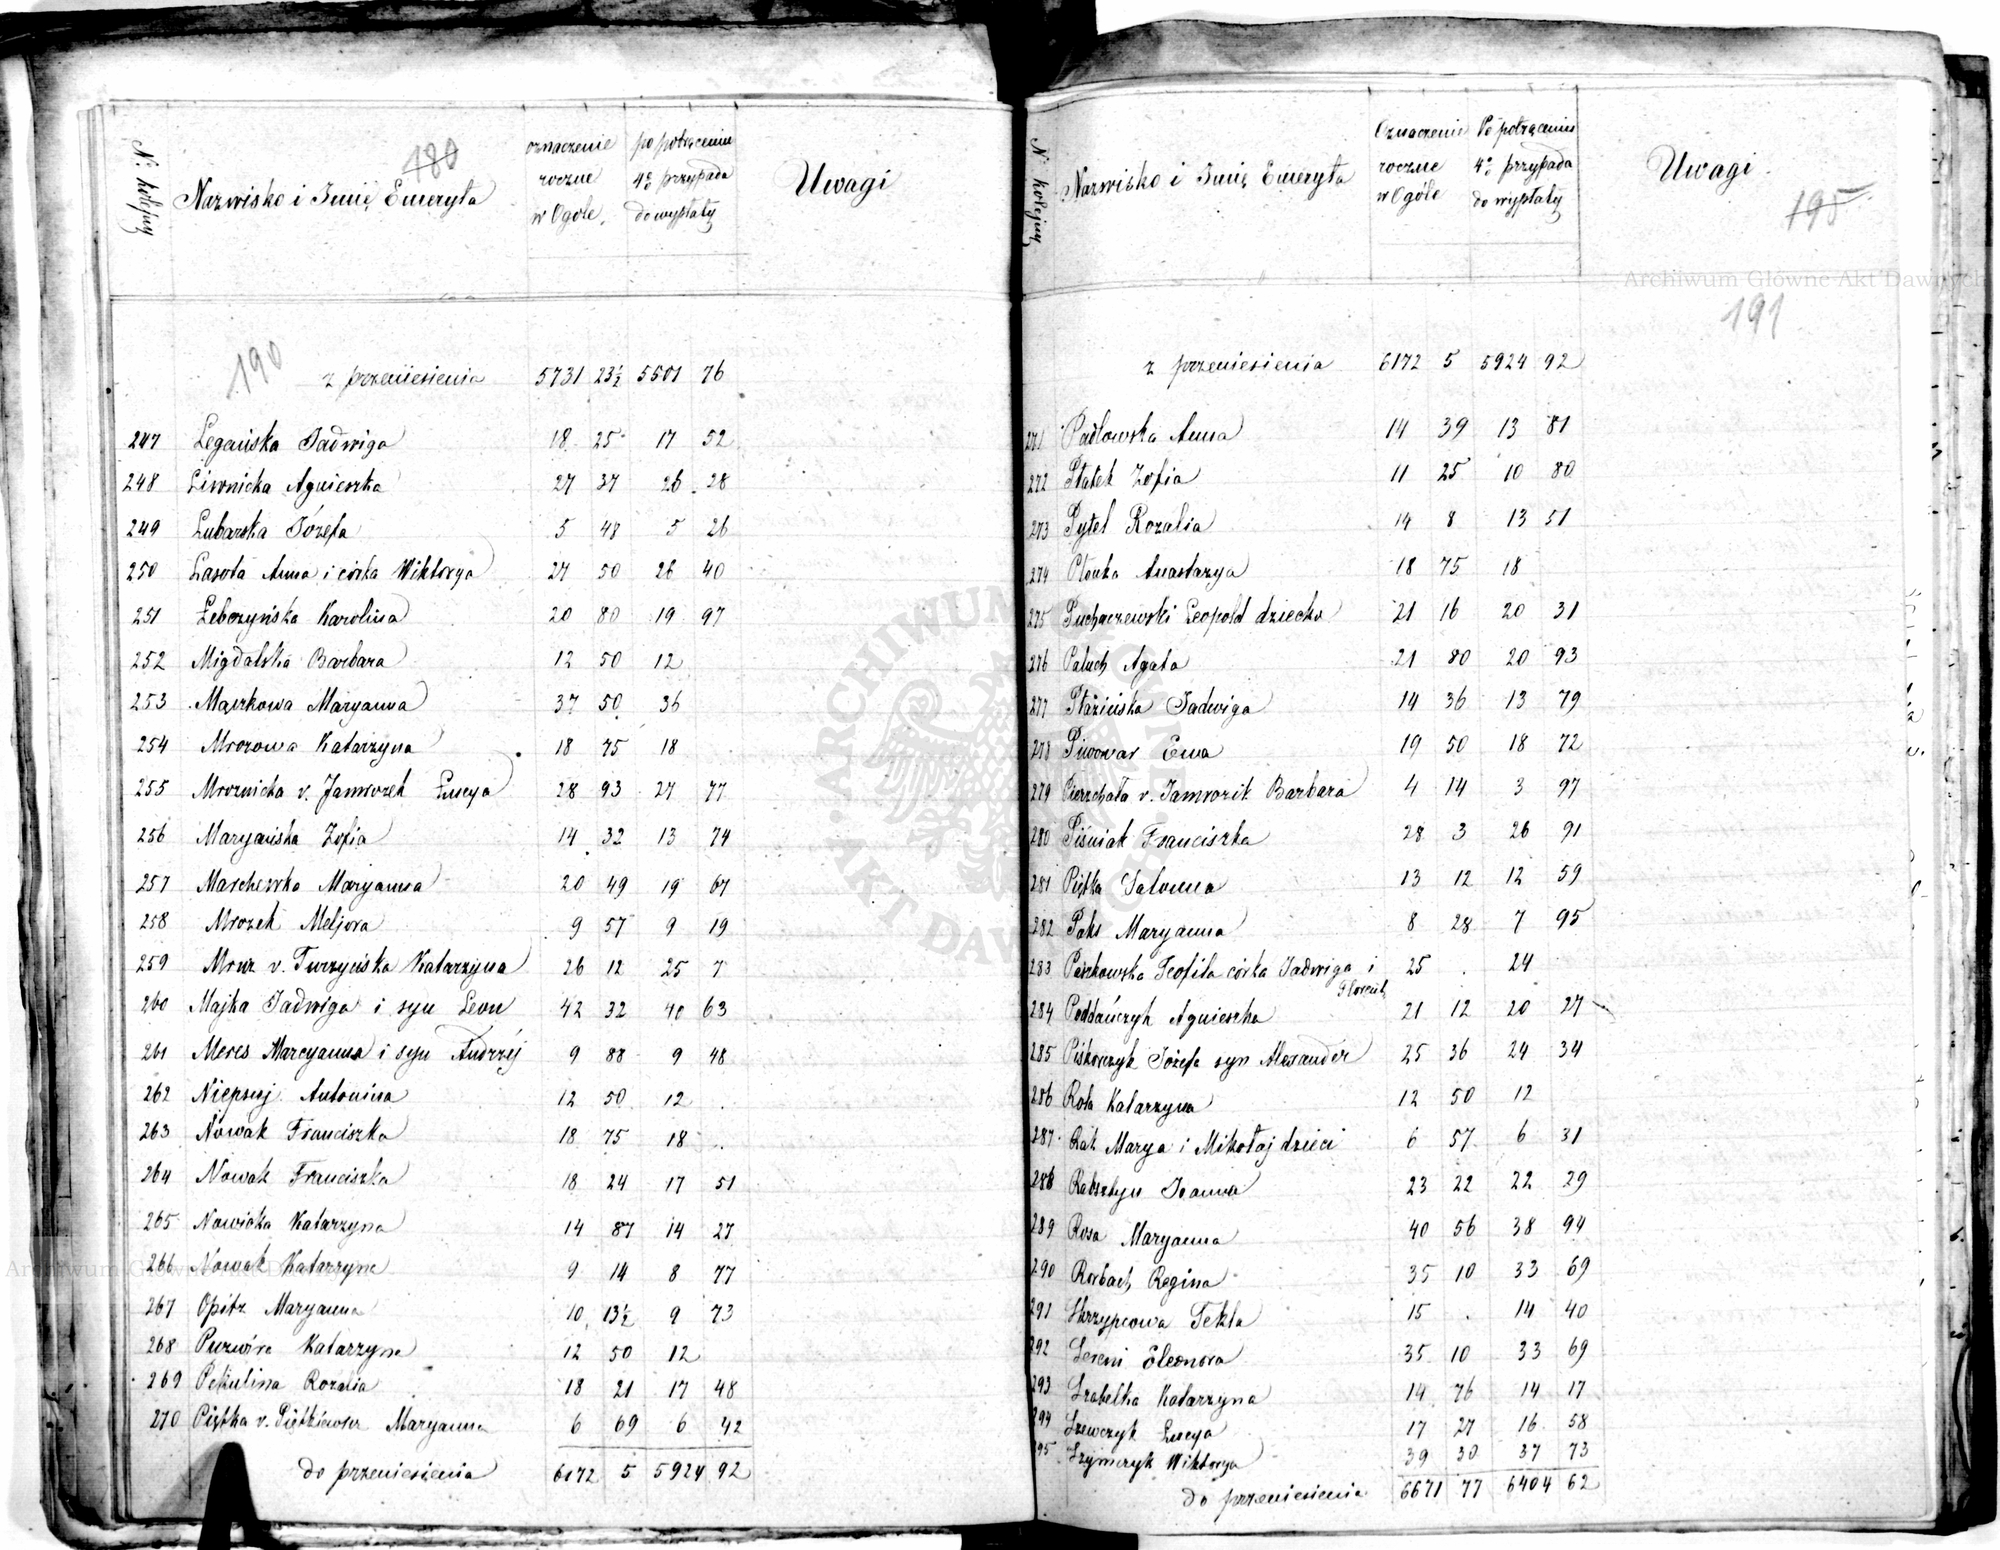 180
N: kolejny
Nazwisko i Imię Emeryta
oznaczenie roczne w Ogóle
po potrąceniu 4% przypada do wypłaty
Uwagi
190
z przeniesienia 5731 23½ 5501 76
247 Legańska Jadwiga 18 25 17 52
248 Lisonicka Agnieszka 27 37 26 28
249 Lubarska Józefa 5 48 5 26
250 Lasota Anna i córka Wiktorya 27 50 26 40
251 Łebczyńska Karolina 20 80 19 97
252 Migdalska Barbara 12 50 12
253 Mączkowa Maryanna 37 50 36
254 Mrozowa Katarzyna 18 75 18
255 Mroznicka v. Jamrozek Łucya 28 93 27 77
256 Maryańska Zofia 14 32 13 74
257 Marchewka Maryanna 20 49 19 67
258 Mrozek Meljora 9 57 9 19
259 Mruz v. Turzyńska Katarzyna 26 12 25 7
260 Majka Jadwiga i syn Leon 42 32 40 63
261 Meres Marcyanna i syn Andrzéj 9 88 9 48
262 Niepsuj Antonina 12 50 12
263 Nowak Franciszka 18 75 18
264 Nowak Franciszka 18 24 17 51
265 Nowicka Katarzyna 14 87 14 27
266 Nowak Katarzyna 9 14 8 77
267 Opitz Maryanna 10 13½ 9 73
268 Katarzyna 12 50 12
269 Pekulina Rozalia 18 21 17 48
270 Piętka v. Maryanna 6 69 6 42
do przeniesienia 6172 5 5924 92
N. kolejny
Nazwisko i Imię Emeryta
Oznaczenie roczne w Ogóle
Po potrąceniu 4% przypada do wypłaty
Uwagi
195
Archiwum Główne Akt Dawnych
191
z przeniesienia 6172 5 5924 92
271 Padłowska Anna 14 39 13 81
272 Płatek Zofia 11 25 10 80
273 Pytel Rozalia 14 8 13 51
274 Plonka Anastazya 18 75 18
275 Puchaczewski Leopold dziecko 21 16 20 31
276 Paluch Agata 21 80 20 93
277 Płazińska Jadwiga 14 36 13 79
278 Piwowar Ewa 19 50 18 72
279 Pierzchała v. Jamrozik Barbara 4 14 3 97
280 Piśniak Franciszka 28 3 26 91
281 Piętka Salomea 13 12 12 59
282 Paks Maryanna 8 28 7 95
283 Teofila córka Jadwiga i 25 . 24
284 Poddańczyk Agnieszka 21 12 20 27
285 Piskorczyk Józefa syn Alexander 25 36 24 34
286 Rola Katarzyna 12 50 12
287 Rak Marya i Mikołaj dzieci 6 57 6 31
288 Rabsztyn Joanna 23 22 22 29
289 Rosa Maryanna 40 56 38 94
290 Rorbach Regina 35 10 33 69
291 Skrzypcowa Tekla 15 . 14 40
292 Sereni Eleonora 35 10 33 69
293 Szabelka Katarzyna 14 76 14 17
294 Szewczyk Łucya 17 27 16 58
295 Szymczyk Wiktorya 39 30 37 73
do przeniesienia 6671 77 6404 62
ARCHIWUM GŁÓWNE AKT DAWNYCH
Archiwum Główne Akt Dawnych